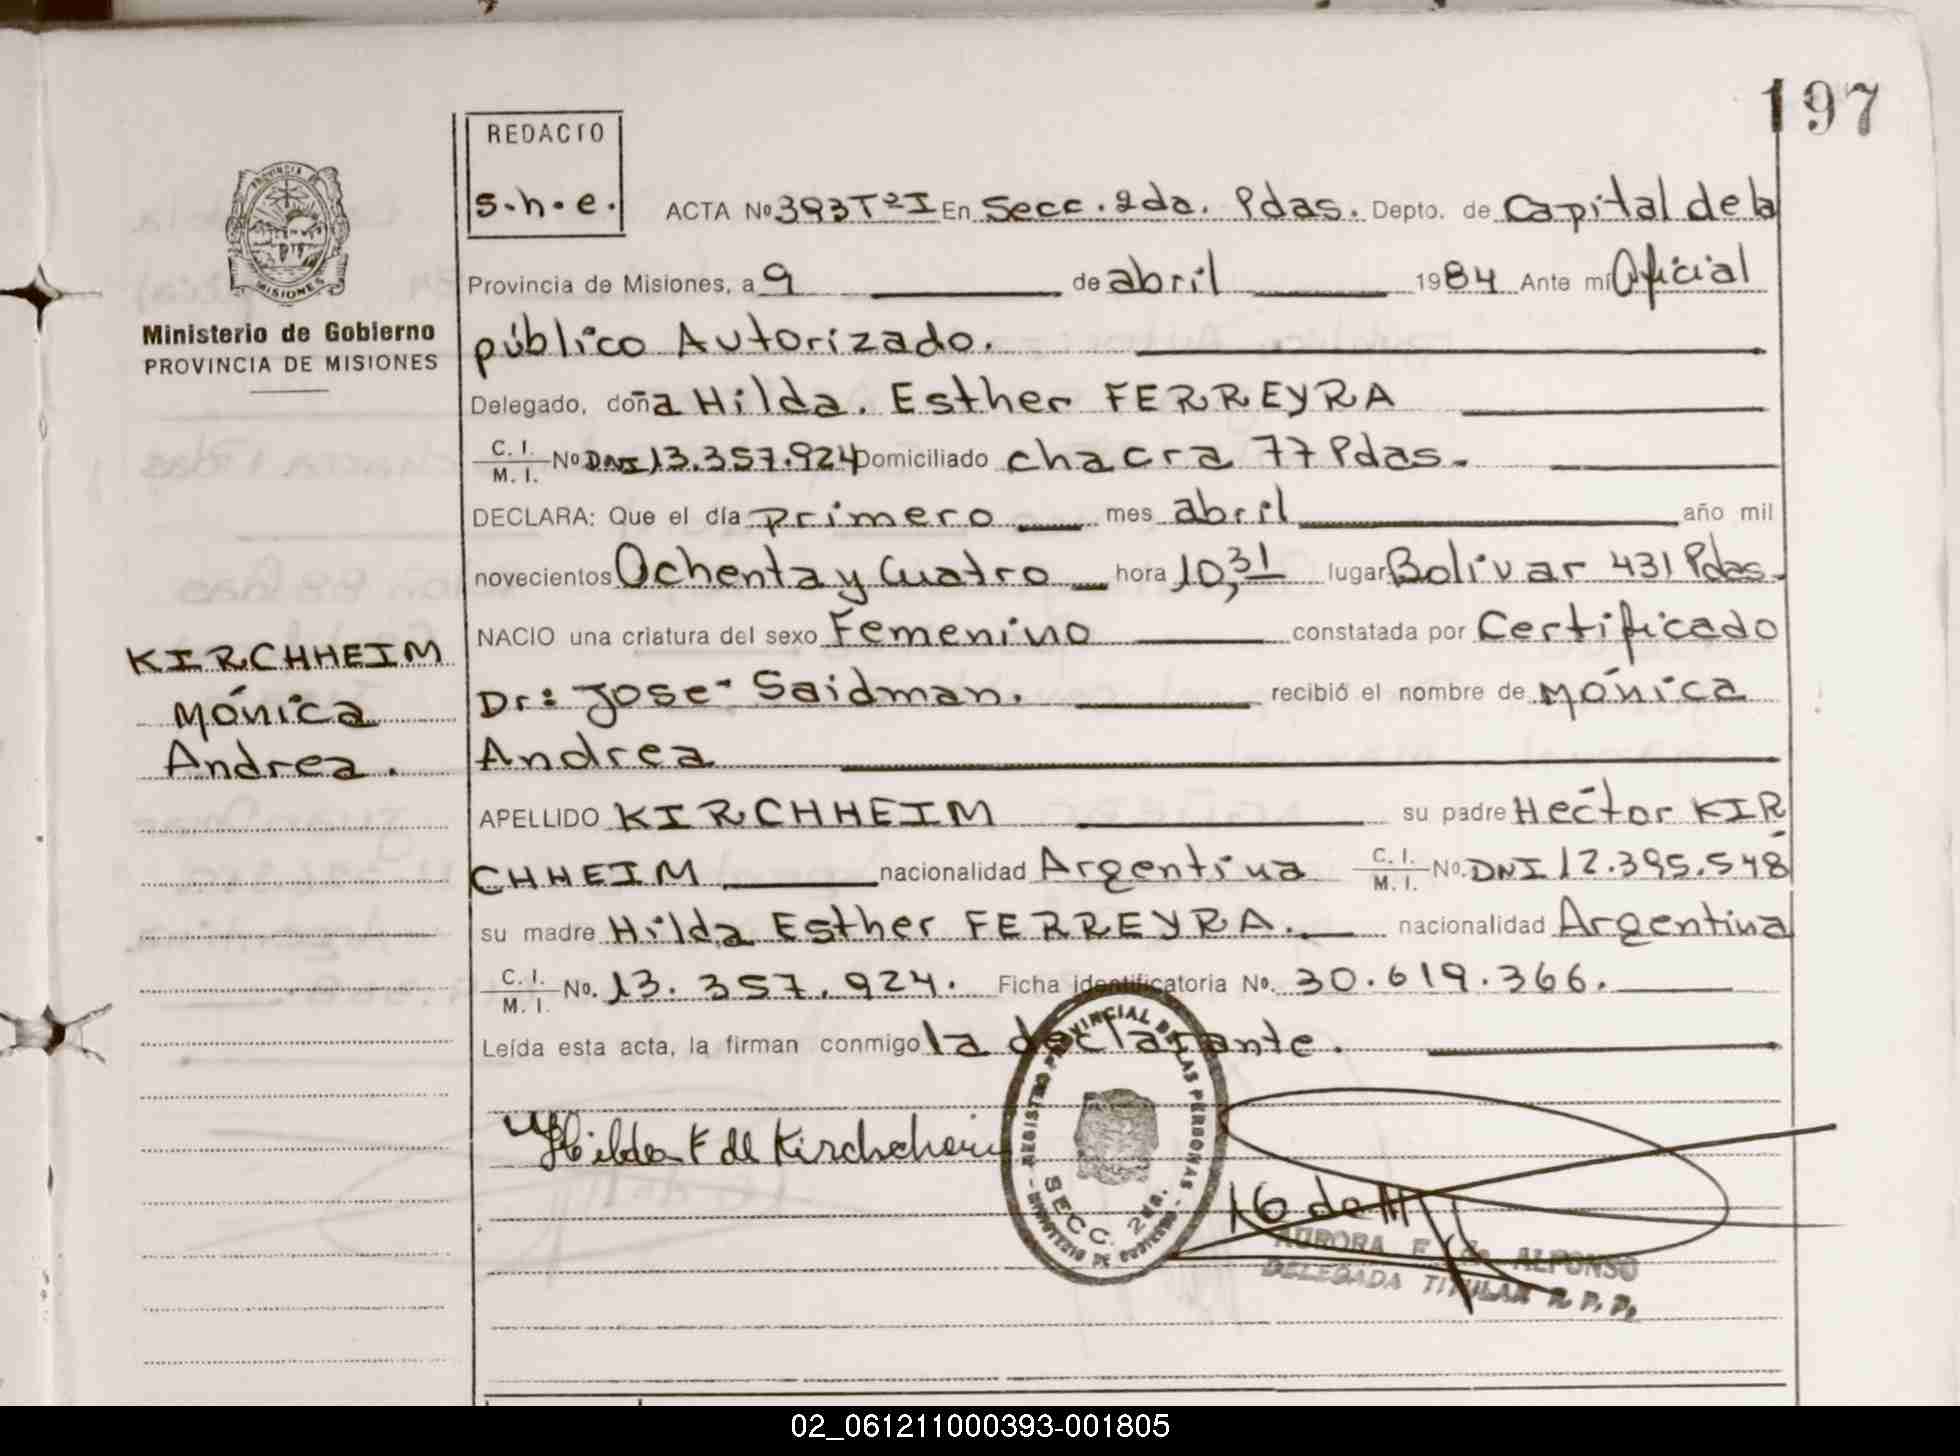 197
REDACTO
s.h.e.
ACTA Nº 393 Tº I En Secc. 2da. Pdas. Depto. de Capital de la
Provincia de Misiones, a 9 de abril 1984 Ante mí Oficial
público Autorizado.
Delegado, doña Hilda. Esther FERREYRA
C. I. / M. I. Nº DNI 13.357.924 Domiciliado chacra 77 Pdas.
DECLARA: Que el día primero mes abril año mil
novecientos Ochenta y Cuatro hora 10,31 lugar Bolívar 431 Pdas.
NACIO una criatura del sexo Femenino constatada por Certificado
Dr: José Saidman. recibió el nombre de Mónica
Andrea
APELLIDO KIRCHHEIM su padre Héctor KIR
CHHEIM nacionalidad Argentina C. I. / M. I. Nº. DNI 12.395.548
su madre Hilda Esther FERREYRA. nacionalidad Argentina
C. I. / M. I. No. 13.357.924. Ficha identificatoria Nº. 30.619.366.
Leída esta acta, la firman conmigo la declarante.
Hilda F de
REGISTRO PROVINCIAL DE LAS PERSONAS
SECC. 2da.
MINISTERIO DE GOBIERNO
AURORA F. de ALFONSO
DELEGADA TITULAR R. P. P.
PROVINCIA DE
MISIONES
Ministerio de Gobierno
PROVINCIA DE MISIONES
KIRCHHEIM
Mónica
Andrea.
02_061211000393-001805